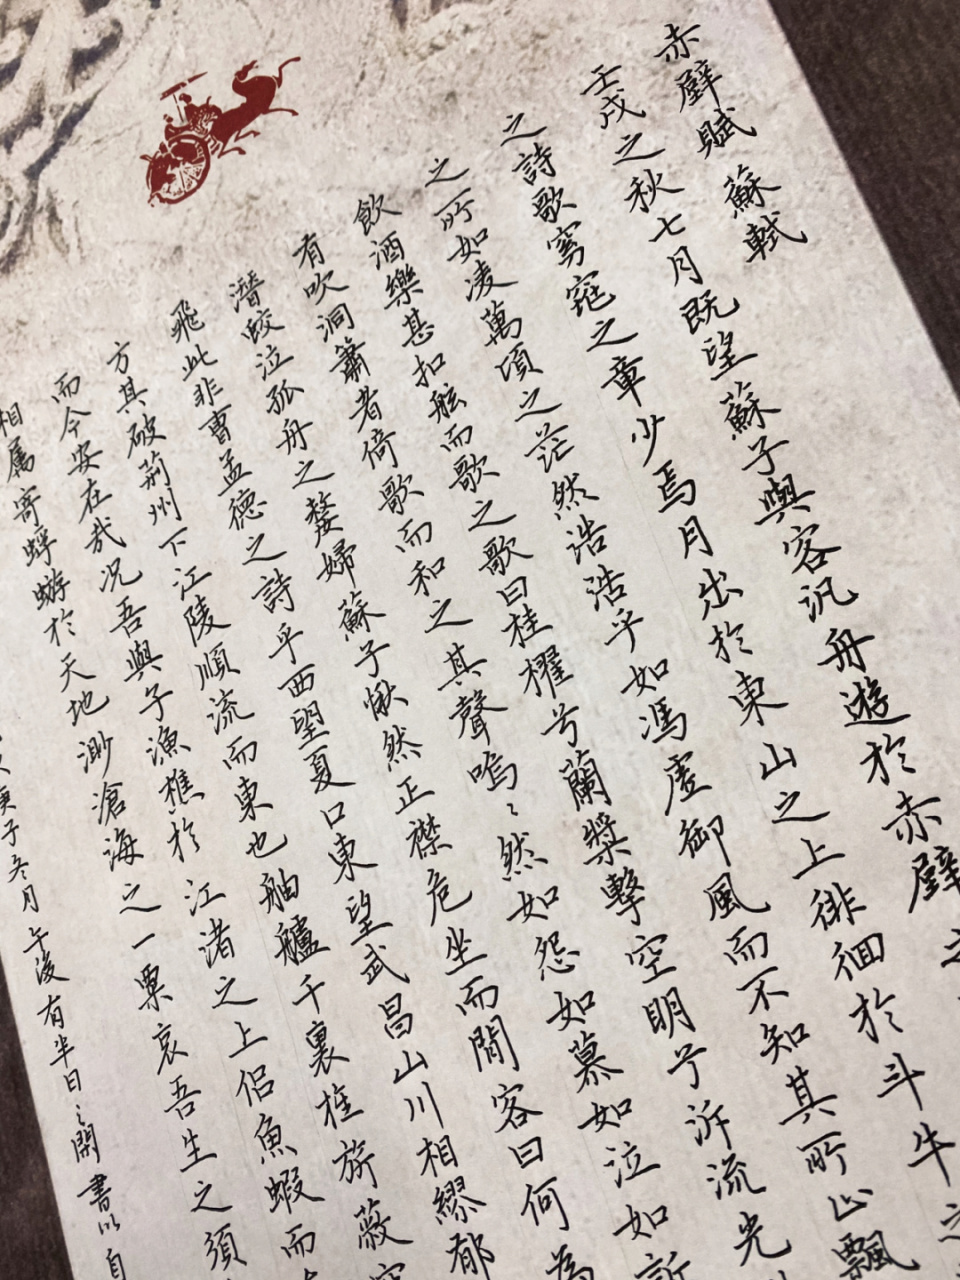 赤壁賦 蘇軾
壬戌之秋七月既望蘇子與客汎舟遊於赤壁之
之詩歌窈窕之章少焉月出於東山之上徘徊於斗牛之
之所如凌萬頃之茫然浩浩乎如馮虛御風而不知其所止飄
飲酒樂甚扣舷而歌之歌曰桂櫂兮蘭槳擊空明兮泝流光
有吹洞簫者倚歌而和之其聲嗚〻然如怨如慕如泣如訴
潛蛟泣孤舟之嫠婦蘇子愀然正襟危坐而問客曰何為
飛此非曹孟德之詩乎西望夏口東望武昌山川相繆郁
方其破荊州下江陵順流而東也舳艫千裏旌旂蔽空
而今安在哉況吾與子漁樵於江渚之上侶魚蝦而
相属寄蜉蝣於天地渺滄海之一粟哀吾生之須
庚子冬月午後有半日〻閑書以自